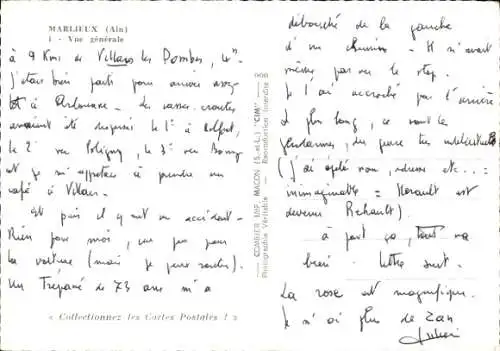 MARLIEUX (Ain)
1 - Vue générale
à 9 Kms de Villars les Dombes, le
j'étais bien parti pour arriver assez
tôt à Ardenne. Les casse-croutes
avaient été disposés le 1er à Belfort,
le 2e vers Poligny, le 3e vers Bourg
et je m'apprêtais à prendre un
café à Villars.
Et puis il y eut un accident.
Rien pour moi, un peu pour
la voiture (mais je peux rouler).
Un Trépané de 73 ans m'a
« Collectionnez les Cartes Postales ! »
COMBIER IMP. MACON (S.-et-L.) "CIM"
Photographie Véritable - Reproduction Interdite
débouché de la gauche
d'un chemin. Il n'avait
même pas vu le stop.
Je l'ai accroché par l'arrière
Le plus long, ce sont les
gendarmes, du genre très
(j'ai épelé nom, adresse etc...:
inimaginable = Hérault est
devenu Rehault).
à part ça, tout va
bien. Lettre suit.
La rose est magnifique.
Je n'ai plus de Zan